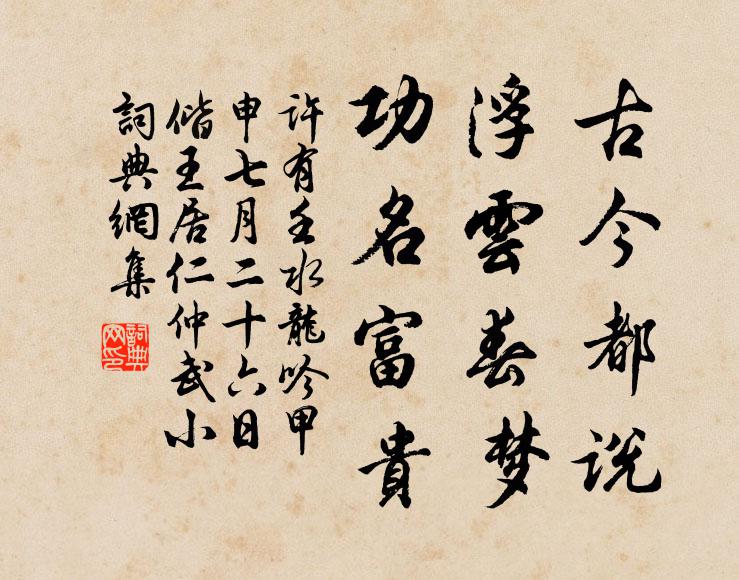 古今都说
浮雲春梦
功名富貴
许有壬水龍吟甲
申七月二十六日
偕王居仁仲武小
詞典網集
詞典网印